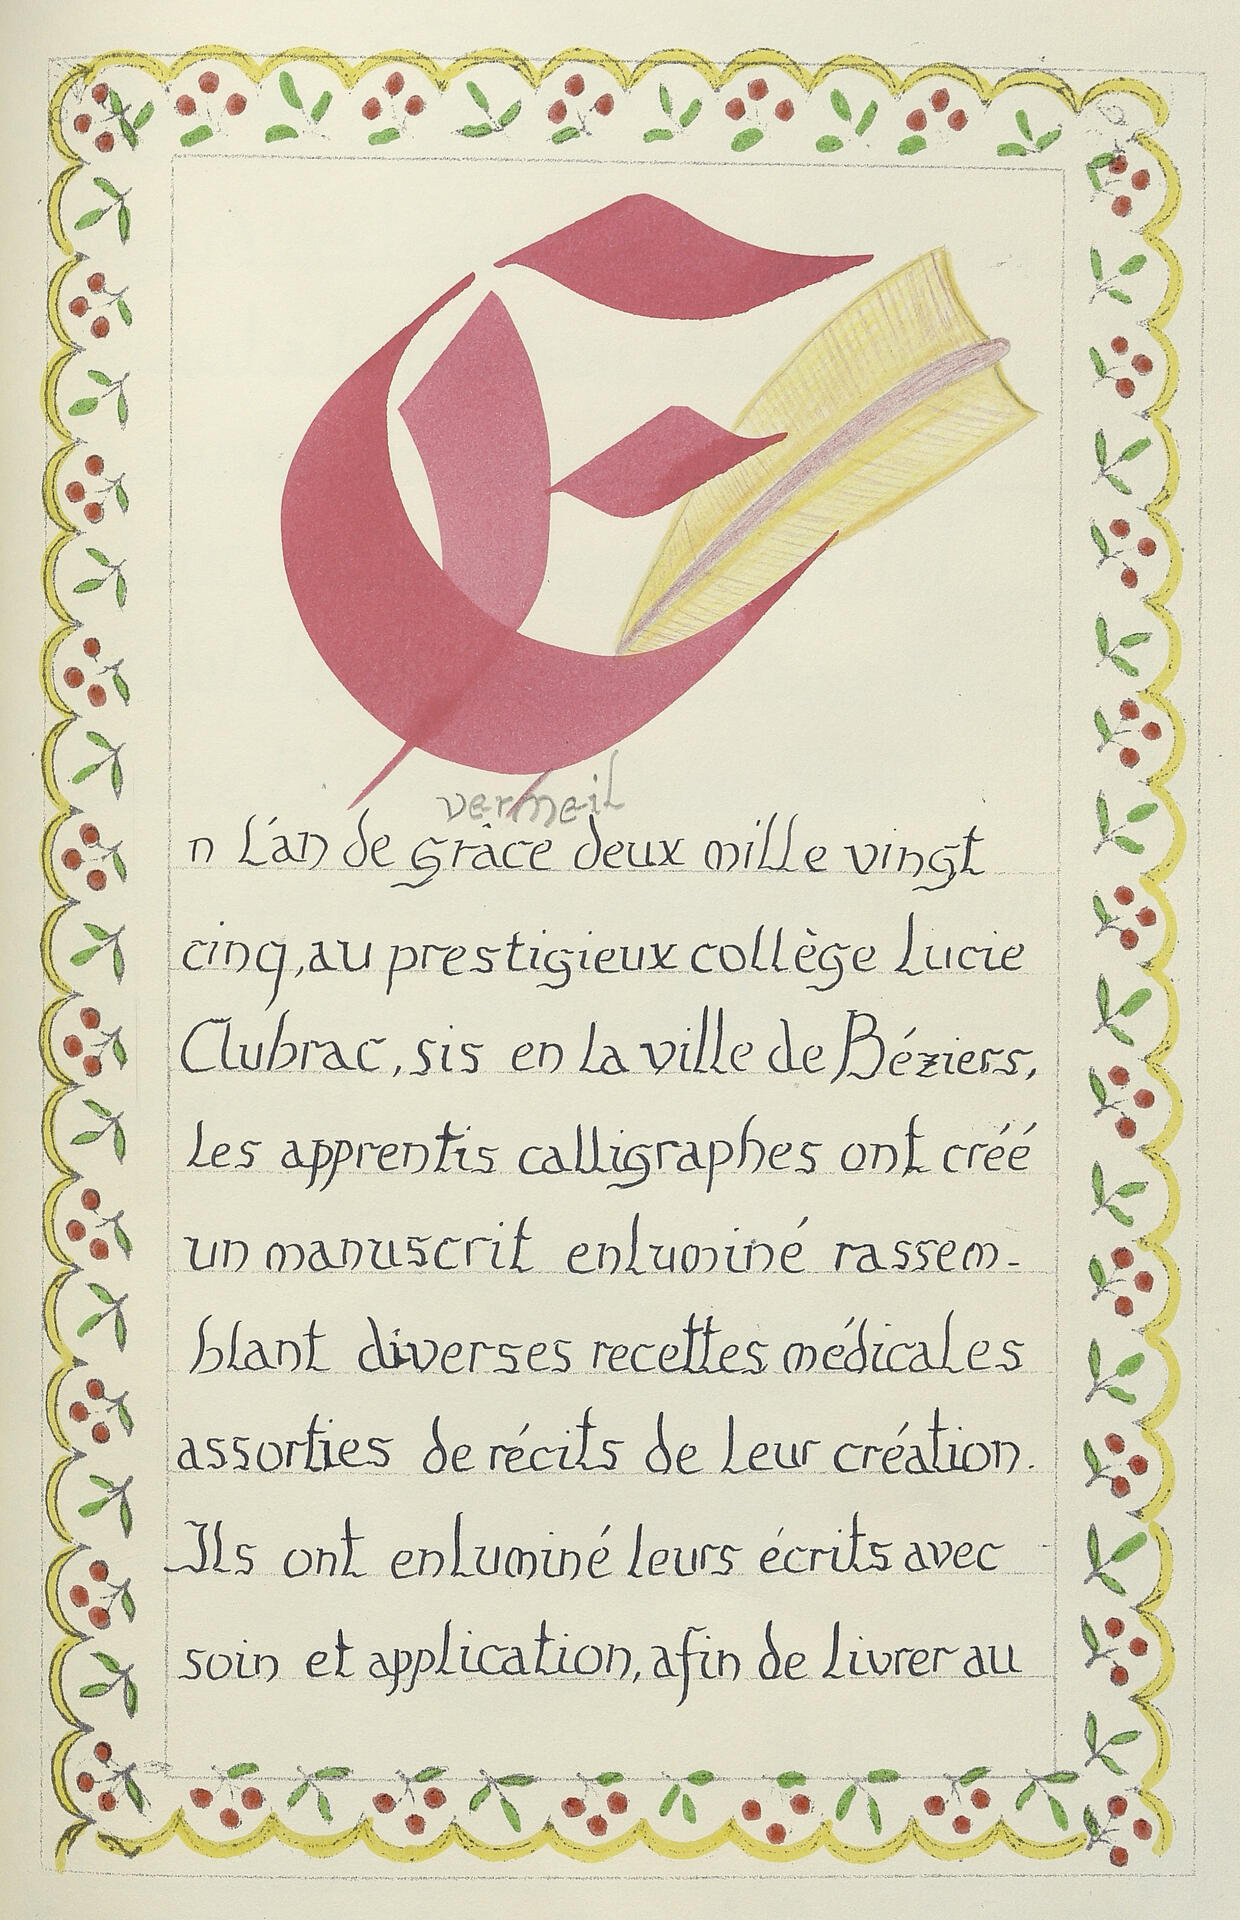 E
vermeil
n l'an de grâce deux mille vingt
cinq, au prestigieux collège Lucie
Aubrac, sis en la ville de Béziers,
les apprentis calligraphes ont créé
un manuscrit enluminé rassem-
blant diverses recettes médicales
assorties de récits de leur création.
Ils ont enluminé leurs écrits avec
soin et application, afin de livrer au